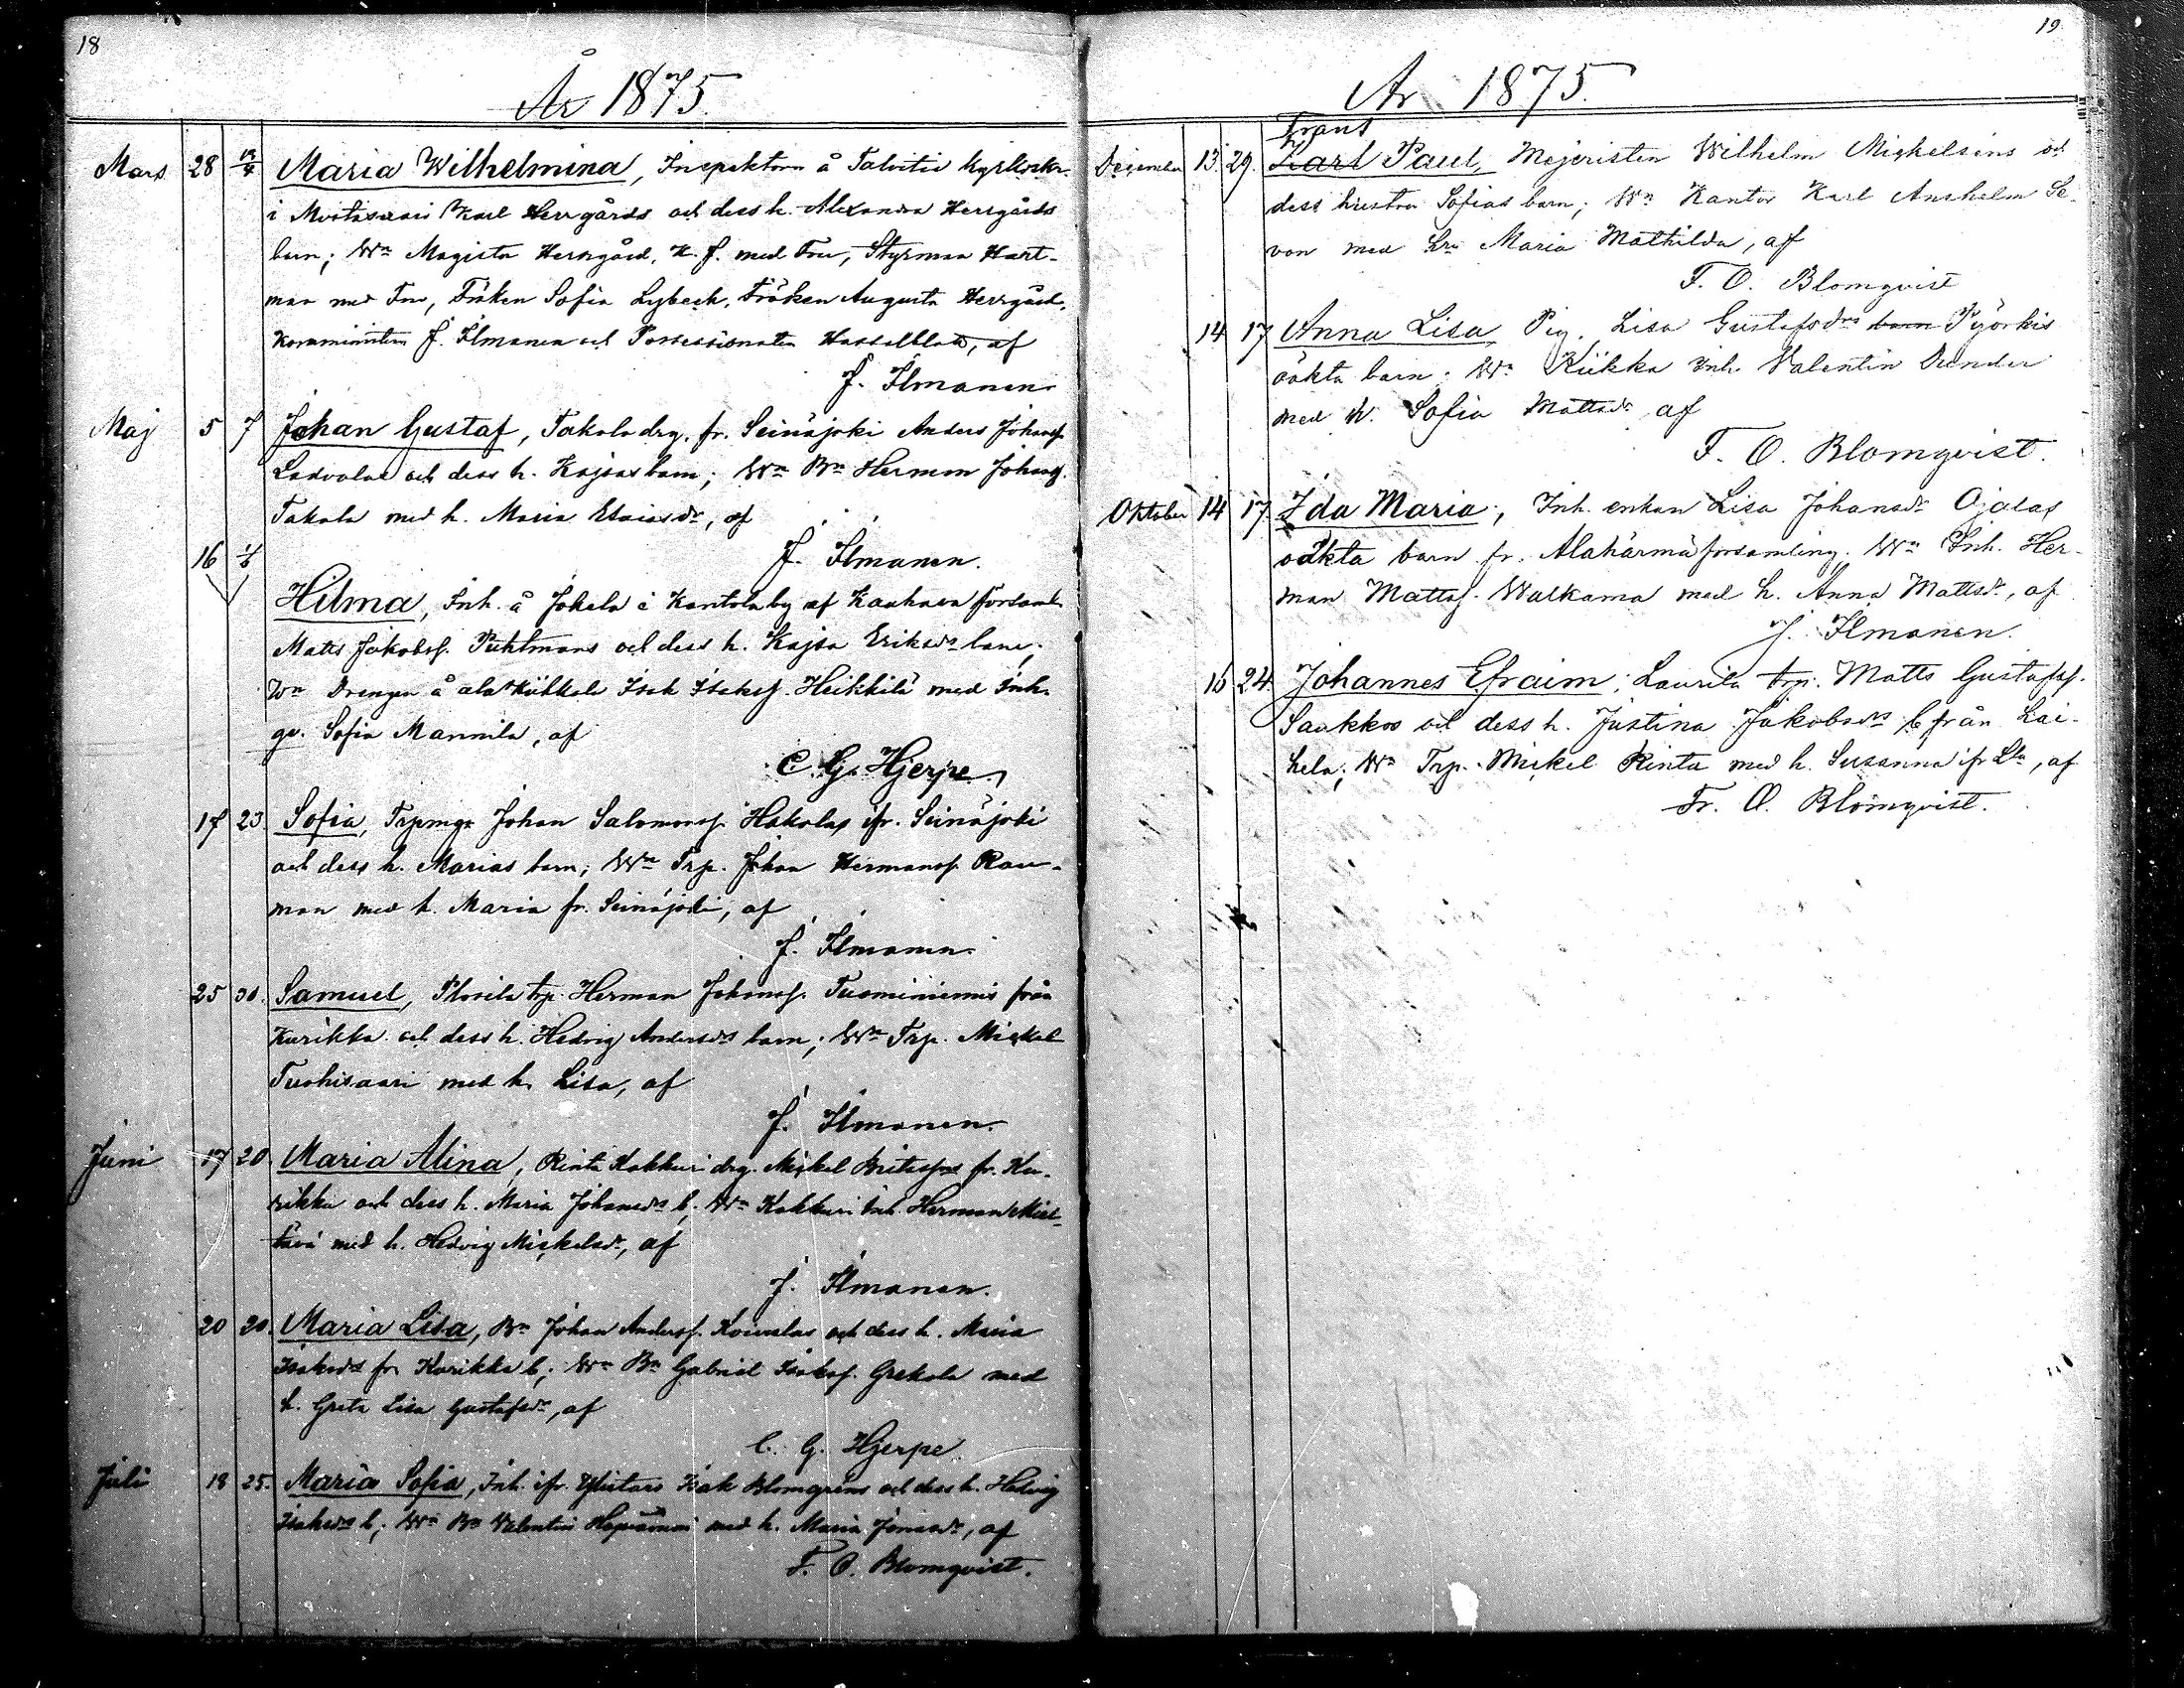 18
År 1875.
Mars 28 12/4 Maria Wilhelmina, Inspektorn å Talvitie
i Karl Herrgårds och dess h. Alexandra Herrgårds
barn; Wn Magister Herrgård, K. J. med Fru, Styrman Hart-
man med Fru, Fröken Sofia Lybeck, Fröken Augusta Herrgård,
Komminister J. Ilmanen och Possessionaten Hasselblatt, af
J. Ilmanen
Maj 5 7 Johan Gustaf, Takala drg. fr. Seinäjoki Anders Johansf.
Ladvalas och dess h. Kajsas barn; Wn Bn Herman Johansf.
Takala med h. Maria Esaiasdr, af
J. Ilmanen.
16
Hilma, Inh. å Jokela i Kantola by af Kauhava församl.
Matts Jakobsf. Puhtmans och dess h. Kajsa Eriksdrs barn;
Wn Drengen å ala Kükkala Isak Isaksf. Heikkilä med Inh.
Sofia Mannila, af
C. G. Hjerpe
17 23. Sofia, Johan Salomonsf. Hakolas ifr. Seinäjoki
och dess h. Marias barn; Wn Trp. Johan Hermansf. Rau-
man med h. Maria fr. Seinäjoki, af
J. Ilmanen.
25 30. Samuel, trp. Herman Johansf. Tuominiemis från
Kurikka och dess h. Hedvig Andersdrs barn; Wn Trp. Mickel
Tuohisaari med h. Lisa, af
J. Ilmanen.
Juni 17 20. Maria Alina, Rinta Kokkuri drg. Mickel fr. Ku-
rikka och dess h. Maria Johansdrs b. Wn Kokkuri Inh. Herman
med h. Hedvig Mickelsdr, af
J. Ilmanen.
20 20. Maria Lisa, Bn Johan Andersf. Kouvalas och dess h. Maria
Isaksdrs fr. Kurikka b; Wn Bn Gabriel Isaksf. Grekola med
h. Greta Lisa Gustafsdr, af
C. G. Hjerpe.
Juli 18 25. Maria Sofia, Inh. ifr. Ylistaro Isak Blomgrens och dess h. Hedvig
Isaksdrs b; Wn Bn Valentin med h. Maria Jonasdr, af
F. O. Blomqvist.
19
År 1875.
Frans
December 13. 29. Karl Paul, Mejeristen Wilhelm Mickelsens och
dess hustru Sofias barn; Wn Kantor Karl Anshelm Se-
von med hru Maria Mathilda, af
F. O. Blomqvist
14 17 Anna Lisa, Pig. Lisa Gustafsdrs barn Pyörkis
oäkta barn; Wn Kükka Inh. Valentin Dunder
med h. Sofia Mattsdr, af
F. O. Blomqvist.
Oktober 14 17. Ida Maria, Inh. enkan Lisa Johansdr Ojalas
oäkta barn fr. Alahärmä församling. Wn Inh. Her-
man Mattsf. Walkama med h. Anna Mattsdr, af
J. Ilmanen.
15 24 Johannes Efraim; Laurila trp. Matts Gustafsf.
Saukkos och dess h. Justina Jakobsdrs b från Lai-
hela; Wn Trp. Mickel Rinta med h. Susanna ifr Lla, af
Fr. O. Blomqvist.